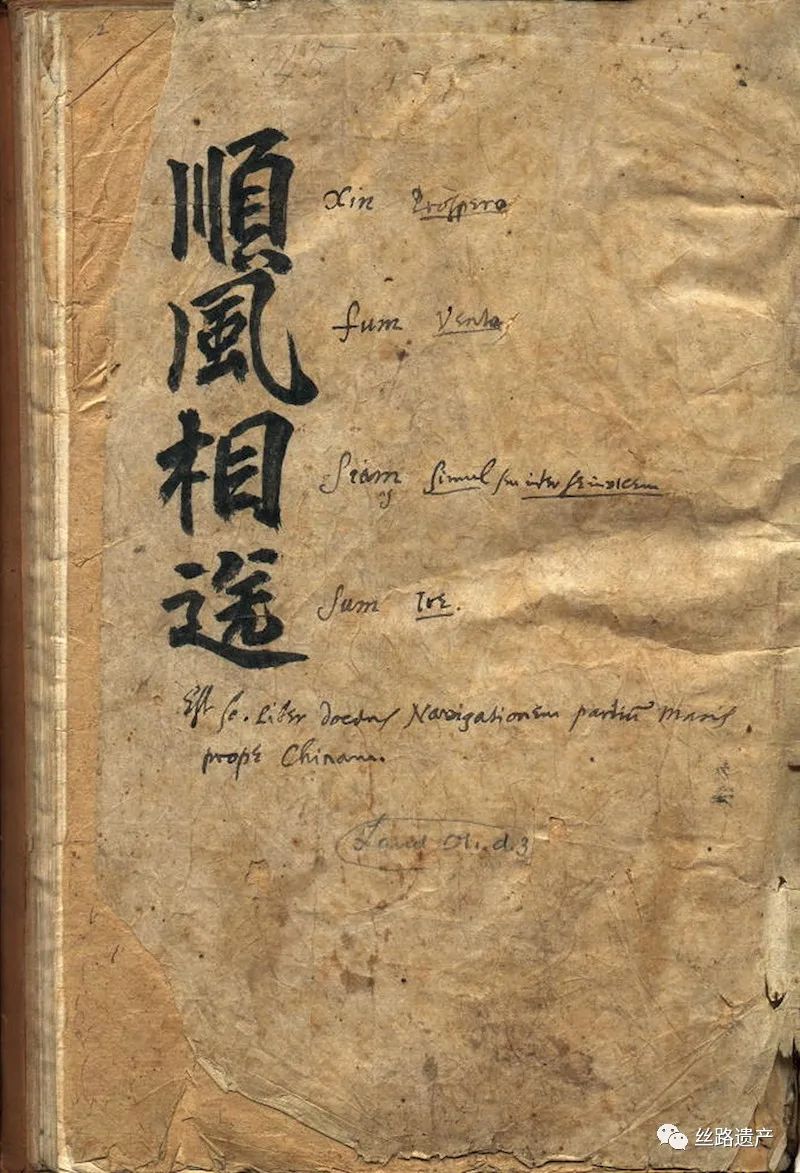 順風相送
Xin Prospero
fum Vento,
Siam Simul seu inter se invicem
Sum Ire.
Est sc. Liber docens Navigationem partiū Maris
prope Chinam.
Laud Or. d. 3
丝路遗产